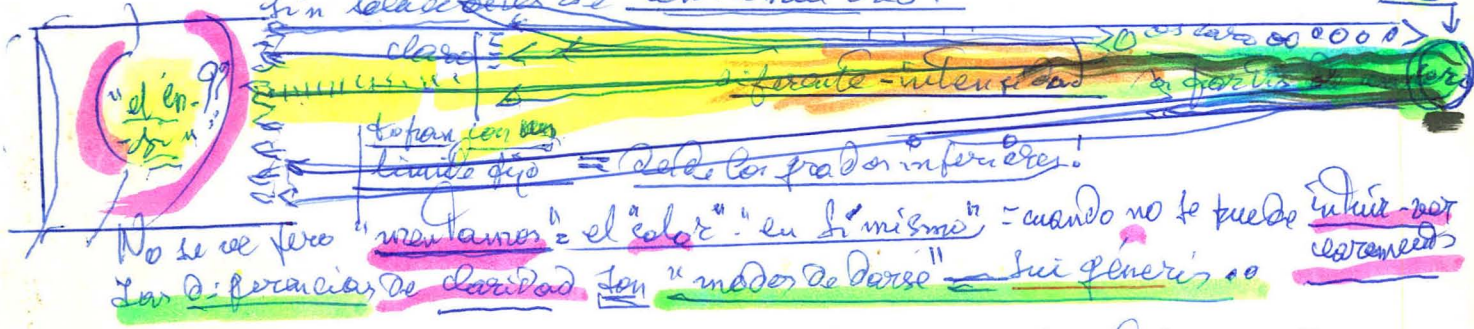 sin
claro
oscuro
"el en-
-sí"?
diferente-intensidad a partir de cero
topan con un
límite fijo = desde los grados inferiores!
No se ve pero "mentamos" = el "color"-"en sí mismo" = cuando no se puede intuir-ver
claramente
Las diferencias de claridad son "modos de darse" = sui géneris..